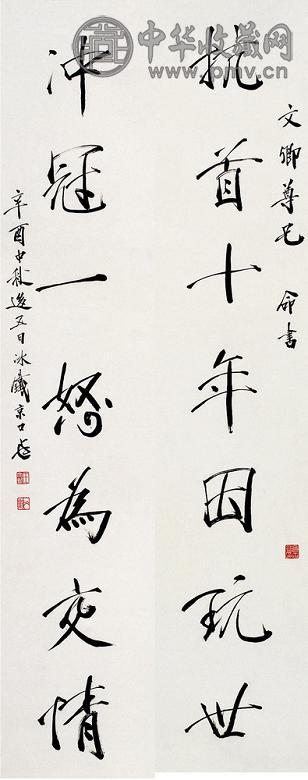 中华收藏网
www.pmv.cn
文卿尊兄 命書
抗首十年因玩世
冲冠一怒為交情
辛酉中秋五日冰鐵京口